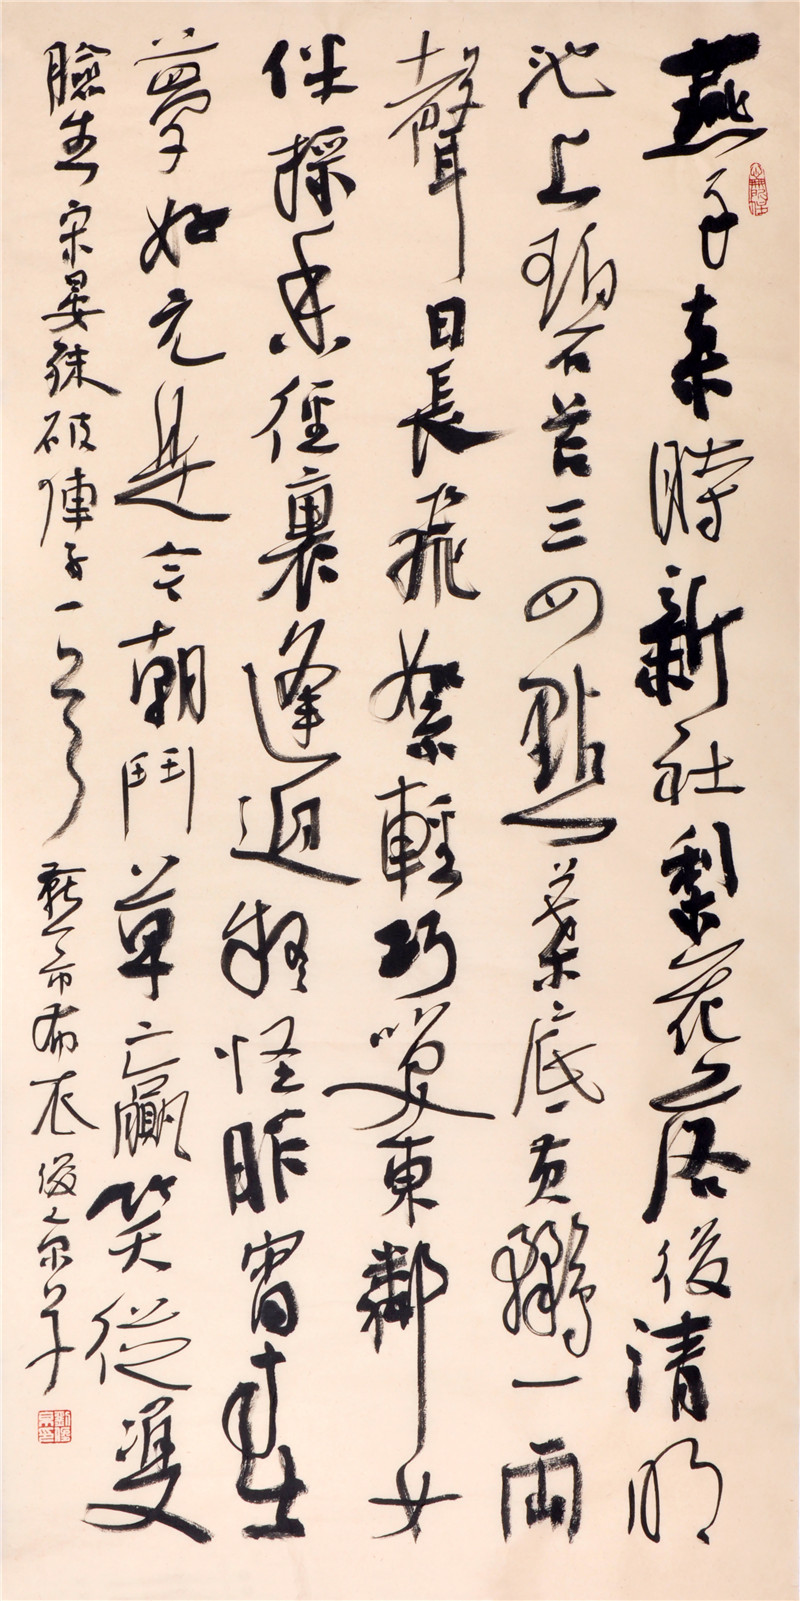 燕子来時新社梨花落後清明
池上碧苔三四點葉底黄鸝一兩
聲日長飛絮輕巧笑東鄰女
伴採香徑裏逢迎疑怪昨宵春
夢好元是今朝鬥草贏笑從雙
臉生 宋晏殊破陣子一首 布衣俊京草